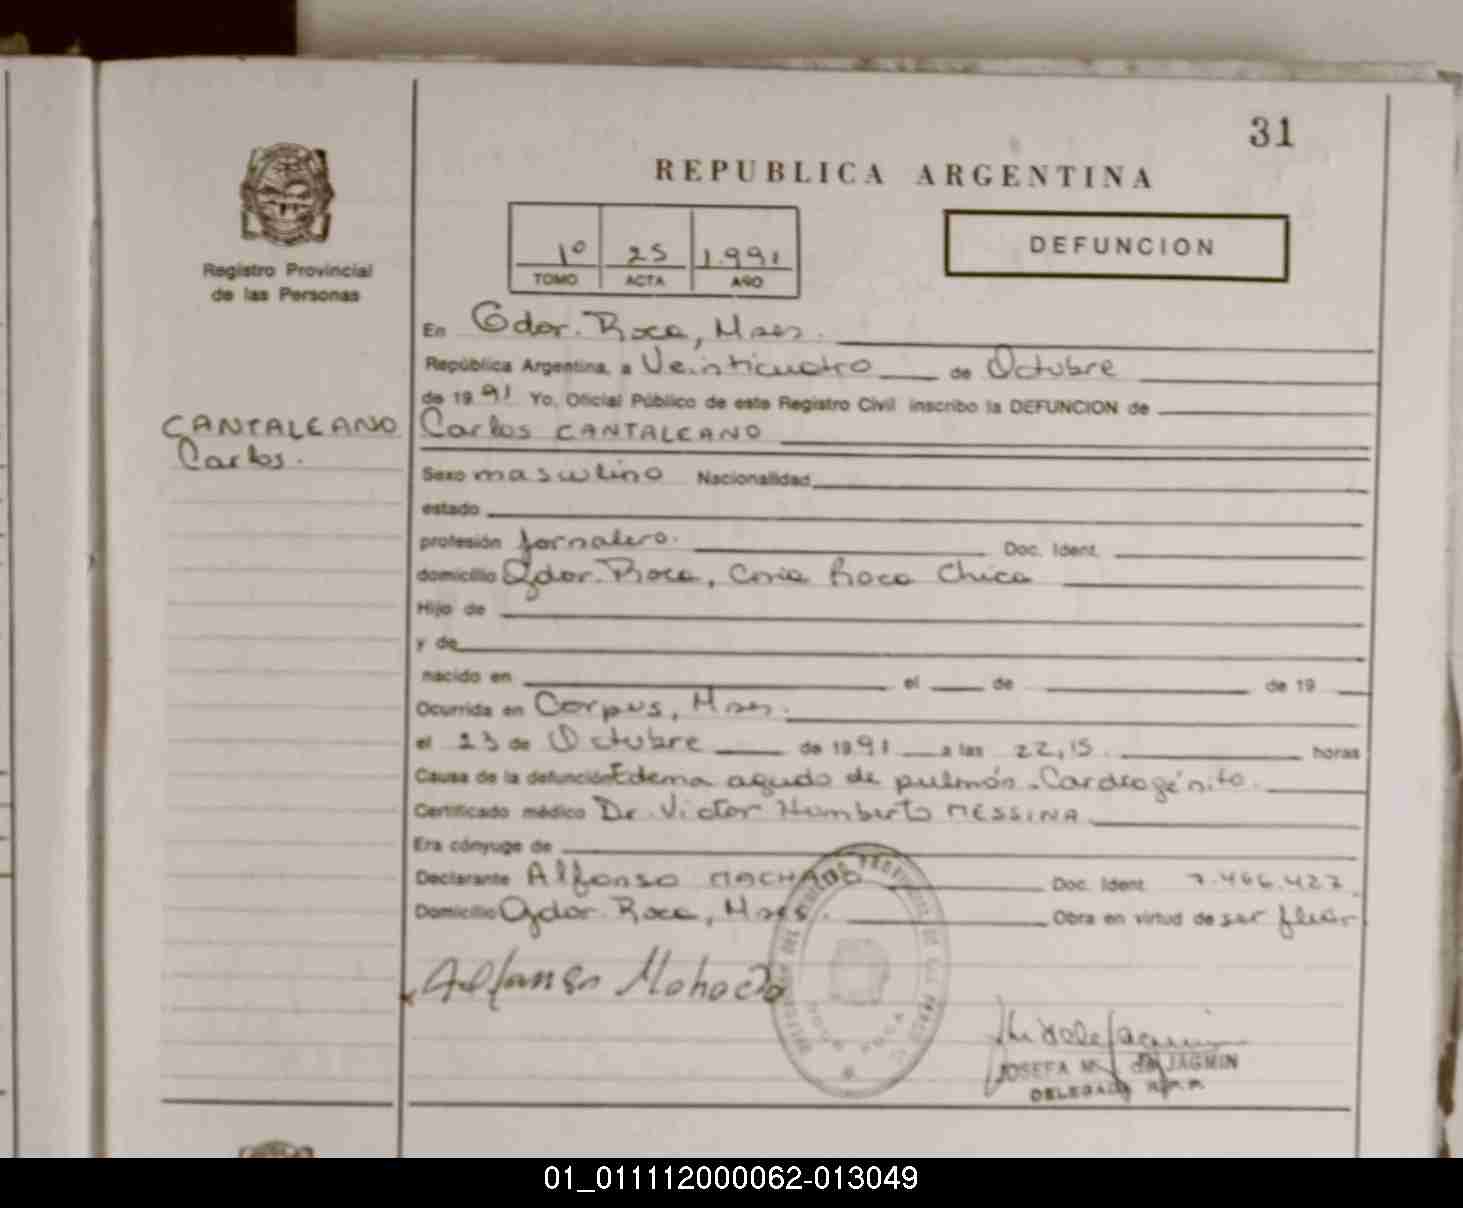 31
REPUBLICA ARGENTINA
1º 25 1.991
TOMO ACTA AÑO
DEFUNCION
Registro Provincial
de las Personas
En Gdor. Roca, Mnes.
República Argentina, a Veinticuatro de Octubre
de 19 91 Yo, Oficial Público de este Registro Civil inscribo la DEFUNCION de
CANTALEANO
Carlos.
Carlos CANTALEANO
Sexo masculino Nacionalidad
estado
profesión Jornalero. Doc. Ident.
domicilio Gdor. Roca, Roca Chica
Hijo de
y de
nacido en el de de 19
Ocurrida en Corpus, Mnes.
el 23 de Octubre de 19 91 a las 22,15. horas
Causa de la defunción Edema agudo de pulmón - Cardiogénito.
Certificado médico Dr. Victor Humberto MESSINA
Era cónyuge de
Declarante Alfonso MACHADO Doc. Ident. 7.466.427
Domicilio Gdor. Roca, Mnes. Obra en virtud de ser
Alfonso
JOSEFA M. de JAGMIN
DELEGADA R.P.P.
01_011112000062-013049